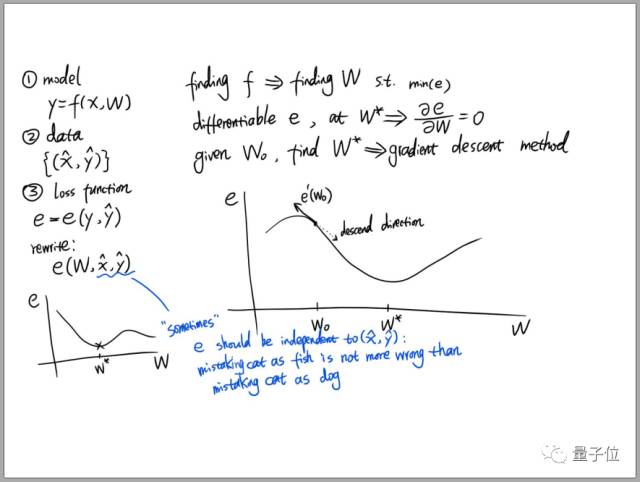 ① model
y=f(x,W)
② data
{(x̂,ŷ)}
③ loss function
e=e(y,ŷ)
rewrite:
e(W,x̂,ŷ)
e
W*
W
finding f ⇒ finding W s.t. min(e)
differentiable e, at W* ⇒ ∂e/∂W = 0
given W₀, find W* ⇒ gradient descent method
e
e'(W₀)
descend direction
W₀
W*
W
"sometimes"
e should be independent to (x̂,ŷ):
mistaking cat as fish is not more wrong than
mistaking cat as dog
量子位